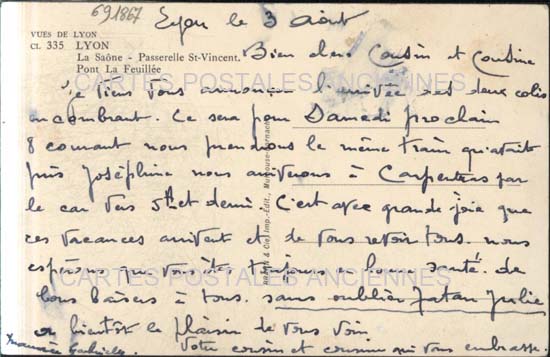 691867
Lyon le 3 Août
VUES DE LYON
CL 335 LYON
La Saône - Passerelle St-Vincent.
Pont La Feuillée
Bien chers Cousin et Cousine
Je viens vous annoncer l'arrivée des deux colis
encombrant. Ce sera pour Samedi prochain
8 courant nous prendrons le même train qu'avait
pris Joséphine nous arriverons à Carpentras par
le car vers 5h et demi. C'est avec grande joie que
ces vacances arrivent et de vous revoir tous. nous
espérons que vous êtes toujours en bonne santé. de
bons baisers à tous. sans oublier Tatan Julie
au bientôt le plaisir de vous voir
Votre cousin et cousine qui vous embrasse.
Maurice Gabrielle
CARTES POSTALES ANCIENNES
CARTES POSTALES ANCIENNES